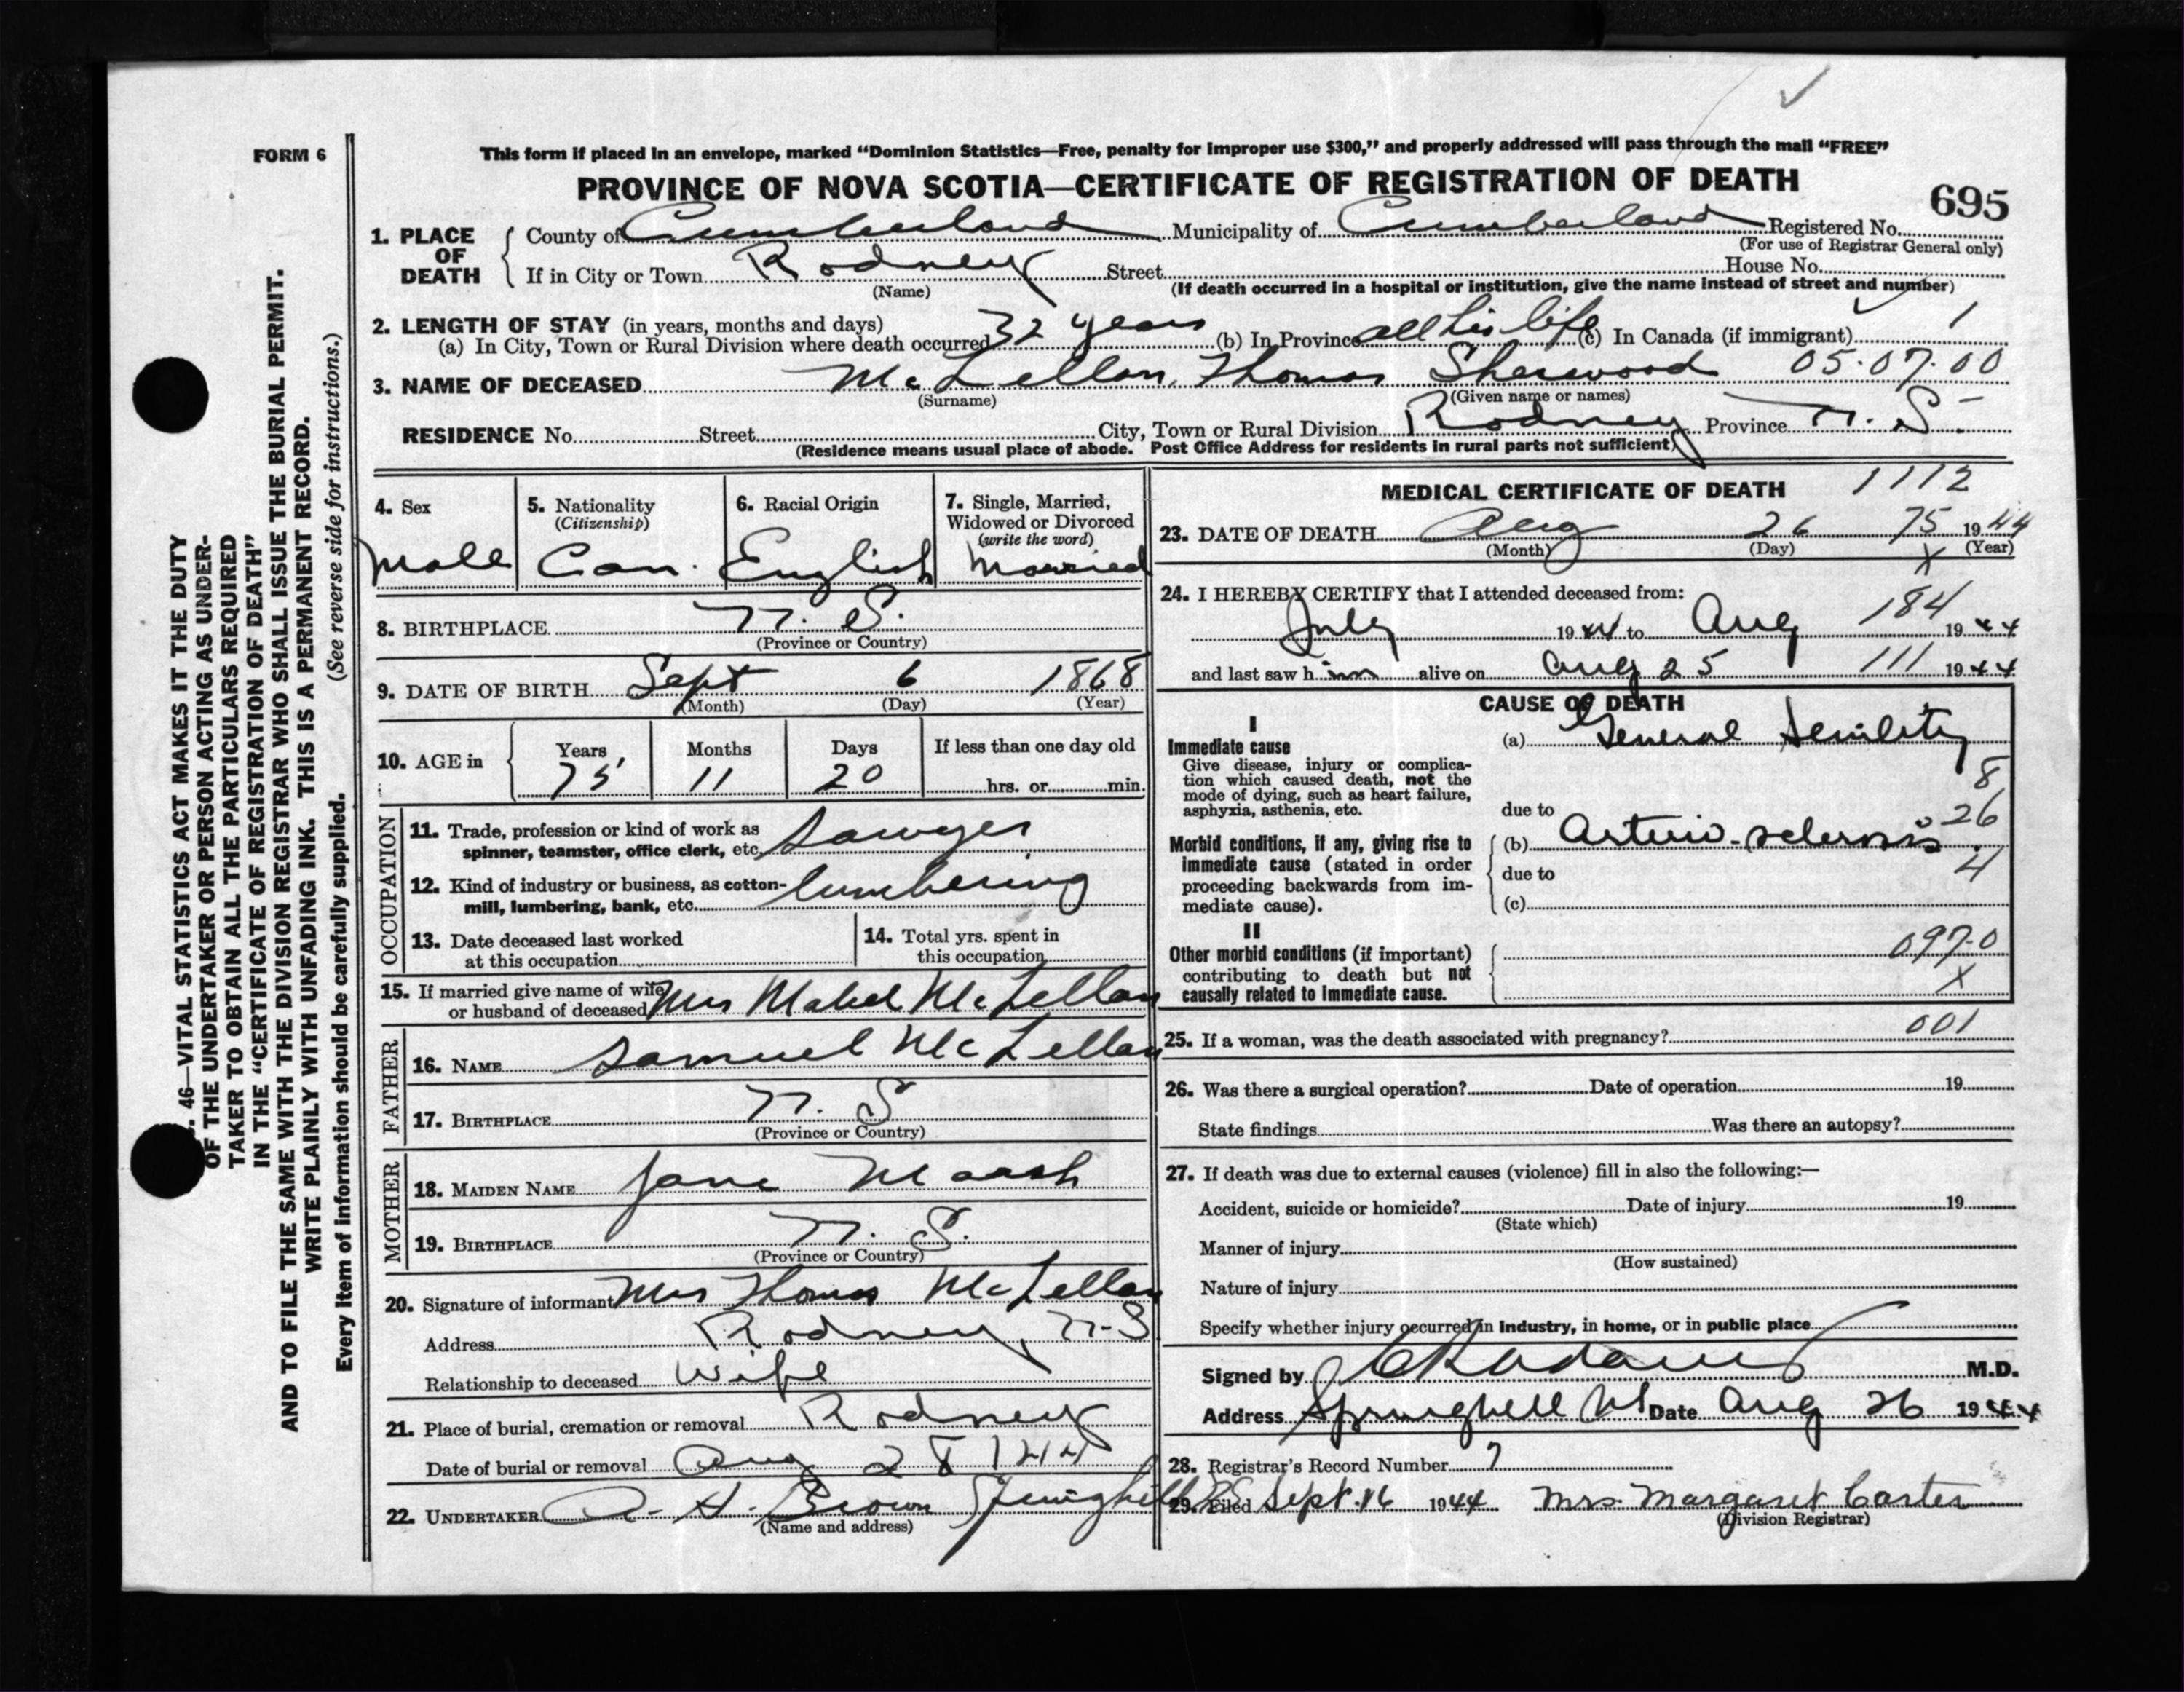 FORM 6
This form if placed in an envelope, marked “Dominion Statistics—Free, penalty for improper use $300,” and properly addressed will pass through the mail “FREE”
PROVINCE OF NOVA SCOTIA—CERTIFICATE OF REGISTRATION OF DEATH
695
1. PLACE OF DEATH
County of Cumberland Municipality of Cumberland Registered No.
(For use of Registrar General only)
If in City or Town Rodney Street House No.
(Name) (If death occurred in a hospital or institution, give the name instead of street and number)
2. LENGTH OF STAY (in years, months and days)
(a) In City, Town or Rural Division where death occurred 32 years (b) In Province all his life (c) In Canada (if immigrant) 1
3. NAME OF DECEASED McLellan, Thomas Sherwood 05.07.00
(Surname) (Given name or names)
RESIDENCE No. Street City, Town or Rural Division Rodney Province N. S.
(Residence means usual place of abode. Post Office Address for residents in rural parts not sufficient)
4. Sex
Male
5. Nationality
(Citizenship)
Can.
6. Racial Origin
English
7. Single, Married,
Widowed or Divorced
(write the word)
Married
8. BIRTHPLACE N. S.
(Province or Country)
9. DATE OF BIRTH Sept 6 1868
(Month) (Day) (Year)
10. AGE in
Years Months Days If less than one day old
75 11 20 hrs. or min.
OCCUPATION
11. Trade, profession or kind of work as
spinner, teamster, office clerk, etc. Sawyer
12. Kind of industry or business, as cotton-
mill, lumbering, bank, etc. lumbering
13. Date deceased last worked
at this occupation
14. Total yrs. spent in
this occupation
15. If married give name of wife
or husband of deceased Mrs Mabel McLellan
FATHER
16. NAME Samuel McLellan
17. BIRTHPLACE N. S
(Province or Country)
MOTHER
18. MAIDEN NAME Jane Marsh
19. BIRTHPLACE N. S.
(Province or Country)
20. Signature of informant Mrs Thomas McLellan
Address Rodney, N-S
Relationship to deceased Wife
21. Place of burial, cremation or removal Rodney
Date of burial or removal Aug 28 144
22. UNDERTAKER A. H. Brown Springhill NS
(Name and address)
MEDICAL CERTIFICATE OF DEATH 1112
23. DATE OF DEATH Aug 26 75 1944
(Month) (Day) X (Year)
24. I HEREBY CERTIFY that I attended deceased from:
July 1944 to Aug 184 1944
and last saw him alive on Aug 25 111 1944
CAUSE OF DEATH
I
Immediate cause
Give disease, injury or complica-
tion which caused death, not the
mode of dying, such as heart failure,
asphyxia, asthenia, etc.
(a) General Senility
8
due to
26
Morbid conditions, if any, giving rise to
immediate cause (stated in order
proceeding backwards from im-
mediate cause).
(b) Arterio-sclerosis
4
due to
(c)
II
Other morbid conditions (if important)
contributing to death but not
causally related to immediate cause.
097-0
X
25. If a woman, was the death associated with pregnancy? 001
26. Was there a surgical operation? Date of operation 19
State findings Was there an autopsy?
27. If death was due to external causes (violence) fill in also the following:—
Accident, suicide or homicide? Date of injury 19
(State which)
Manner of injury
(How sustained)
Nature of injury
Specify whether injury occurred in industry, in home, or in public place
Signed by Adams M.D.
Address Springhill NS Date Aug 26 1944
28. Registrar's Record Number 7
29. Filed Sept. 16 1944 Mrs. Margaret Carter
(Division Registrar)
46—VITAL STATISTICS ACT MAKES IT THE DUTY
OF THE UNDERTAKER OR PERSON ACTING AS UNDER-
TAKER TO OBTAIN ALL THE PARTICULARS REQUIRED
IN THE “CERTIFICATE OF REGISTRATION OF DEATH”
AND TO FILE THE SAME WITH THE DIVISION REGISTRAR WHO SHALL ISSUE THE BURIAL PERMIT.
WRITE PLAINLY WITH UNFADING INK. THIS IS A PERMANENT RECORD.
Every item of information should be carefully supplied. (See reverse side for instructions.)